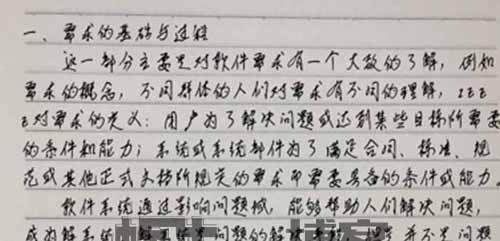 一、需求的基础与过程
这一部分主要是对软件需求有一个大致的了解，例如
需求的概念，不同群体的人们对需求有不同的理解，IEE
E对需求的定义：用户为了解决问题或达到某些目标所需要
的条件和能力；系统或系统部件为了满足合同、标准、规
范或其他正式文档所规定的要求而需要具备的条件或能力。
软件系统通过影响问题域，能够帮助人们解决问题，
成为解系统